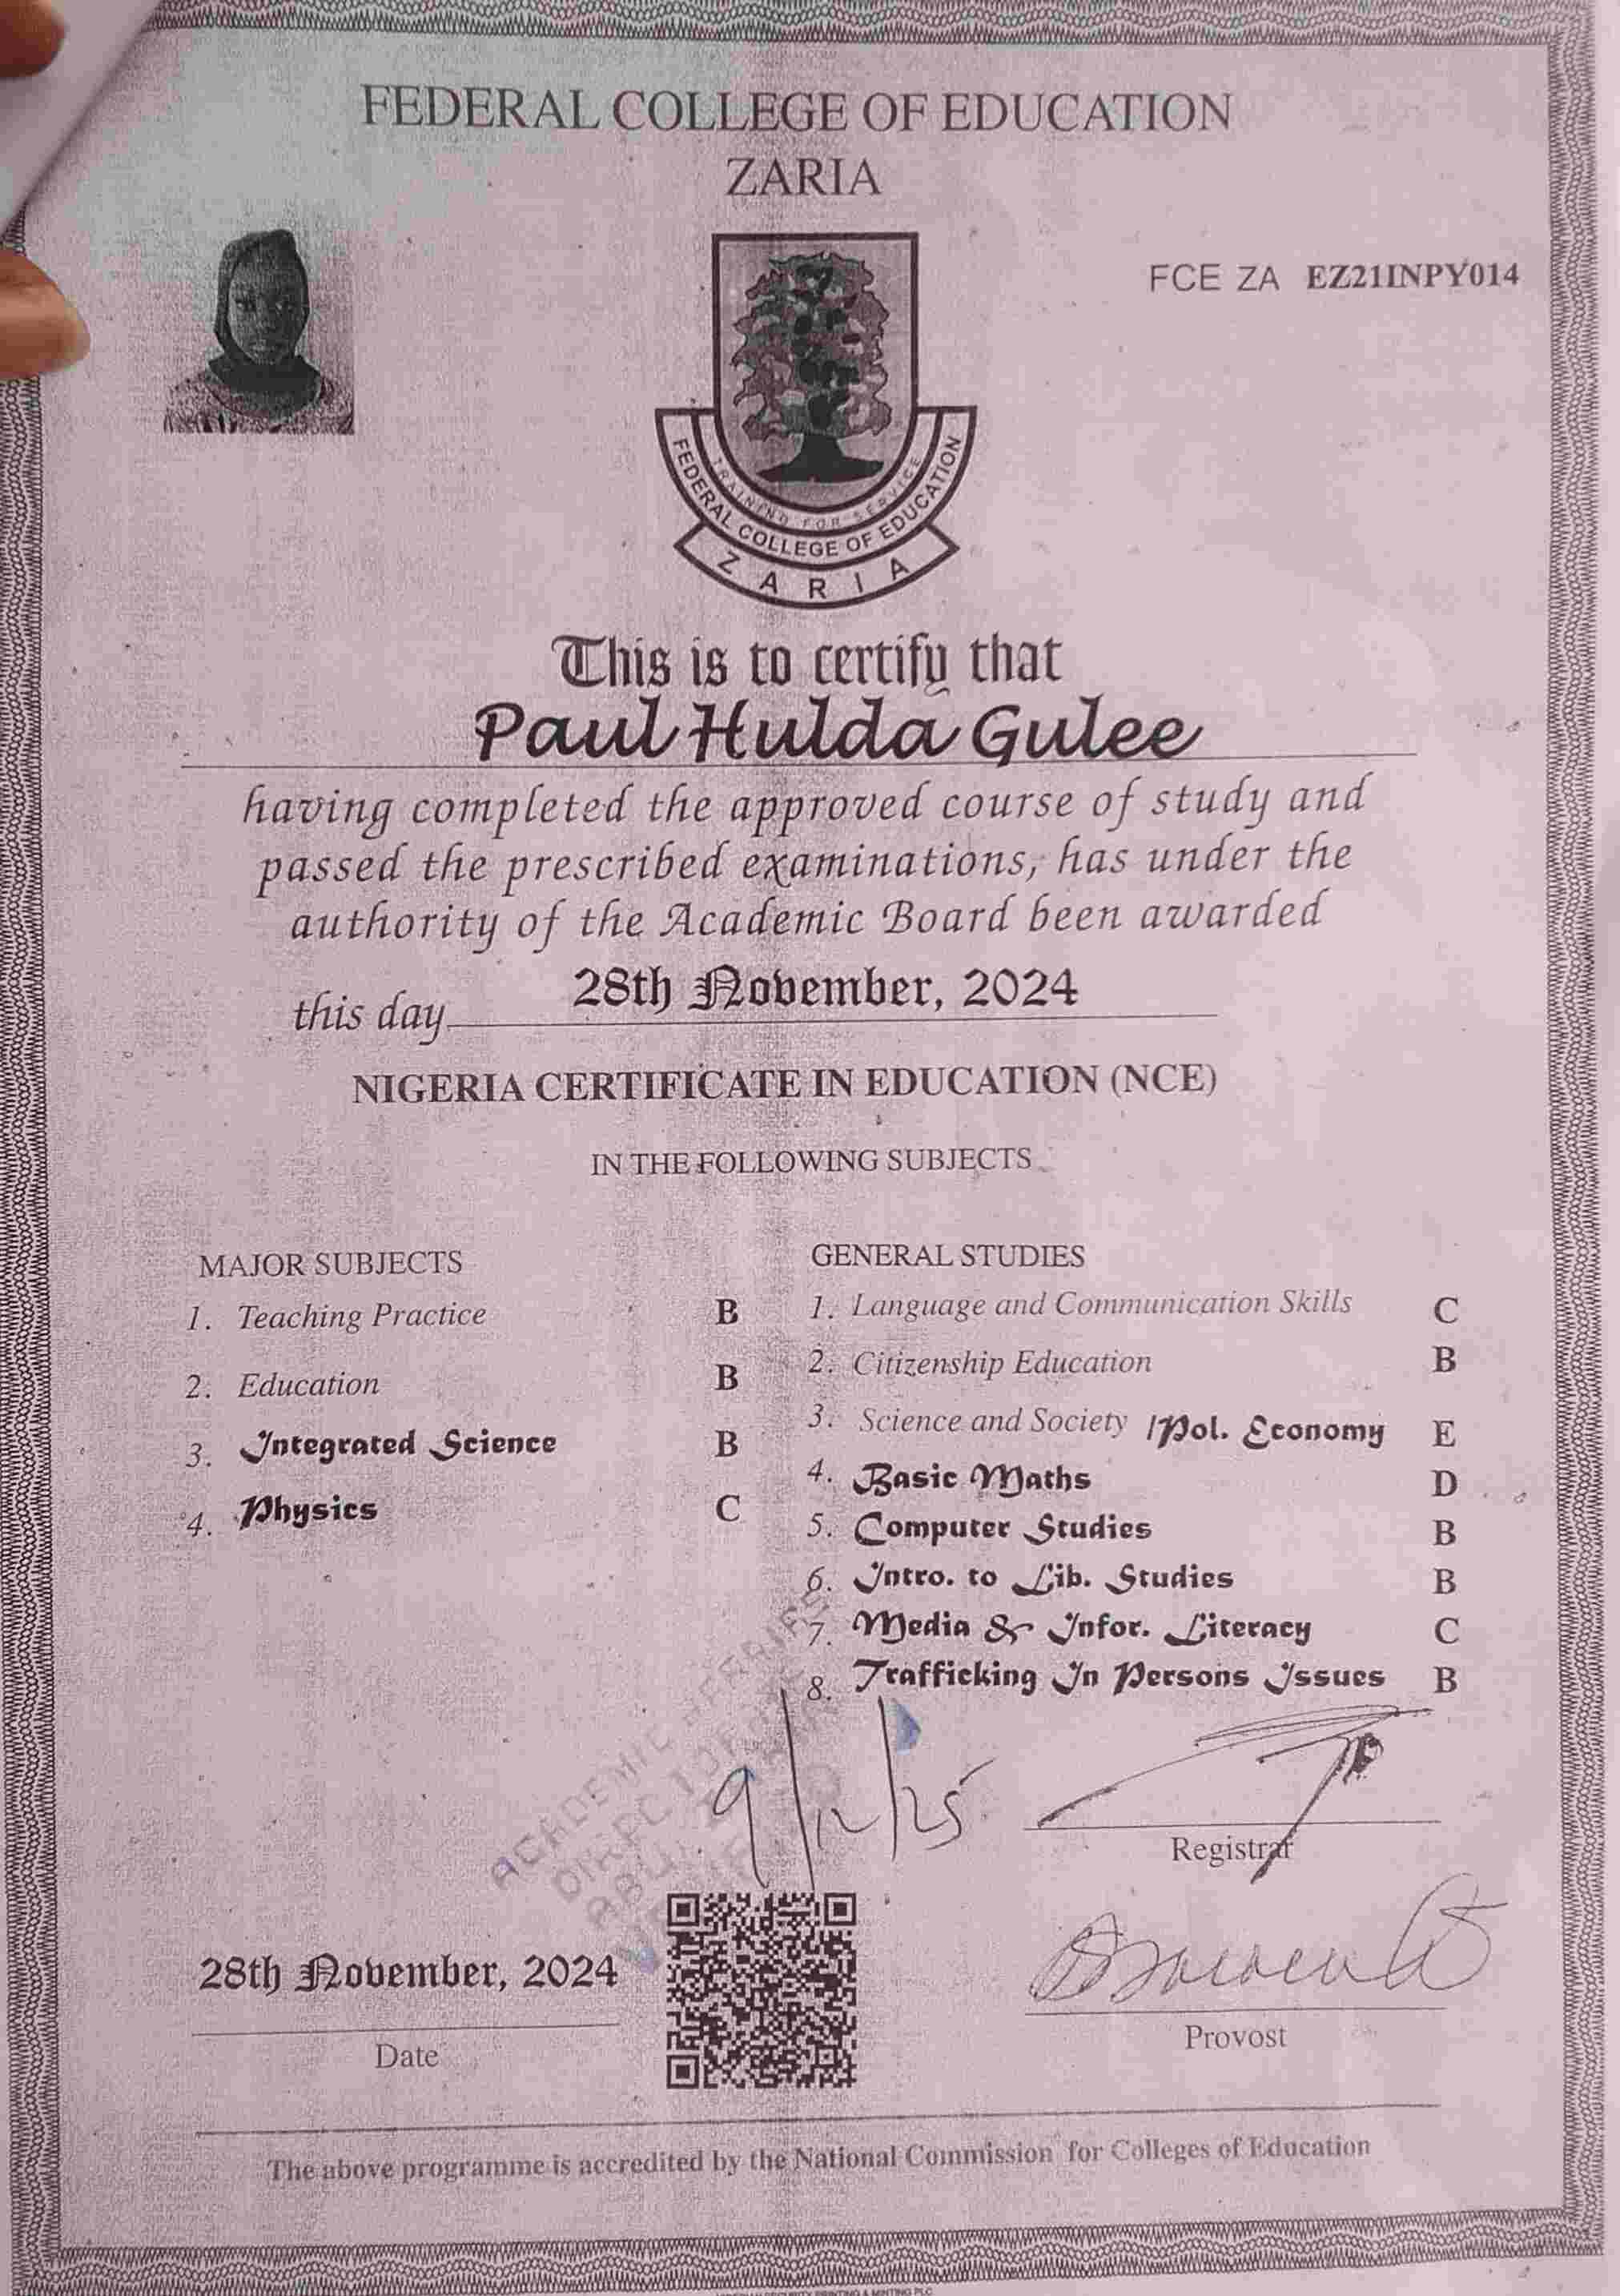 FEDERAL COLLEGE OF EDUCATION
ZARIA
FCE ZA EZ21INPY014
TRAINING FOR SERVICE
FEDERAL COLLEGE OF EDUCATION
ZARIA
This is to certify that
Paul Hulda Gulee
having completed the approved course of study and
passed the prescribed examinations, has under the
authority of the Academic Board been awarded
this day 28th November, 2024
NIGERIA CERTIFICATE IN EDUCATION (NCE)
IN THE FOLLOWING SUBJECTS
MAJOR SUBJECTS
1. Teaching Practice B
2. Education B
3. Integrated Science B
4. Physics C
GENERAL STUDIES
1. Language and Communication Skills C
2. Citizenship Education B
3. Science and Society /Pol. Economy E
4. Basic Maths D
5. Computer Studies B
6. Intro. to Lib. Studies B
7. Media & Infor. Literacy C
8. Trafficking In Persons Issues B
ACADEMIC
9/12/25
Registrar
28th November, 2024
Date
Provost
The above programme is accredited by the National Commission for Colleges of Education
PRINTING & MINTING PLC